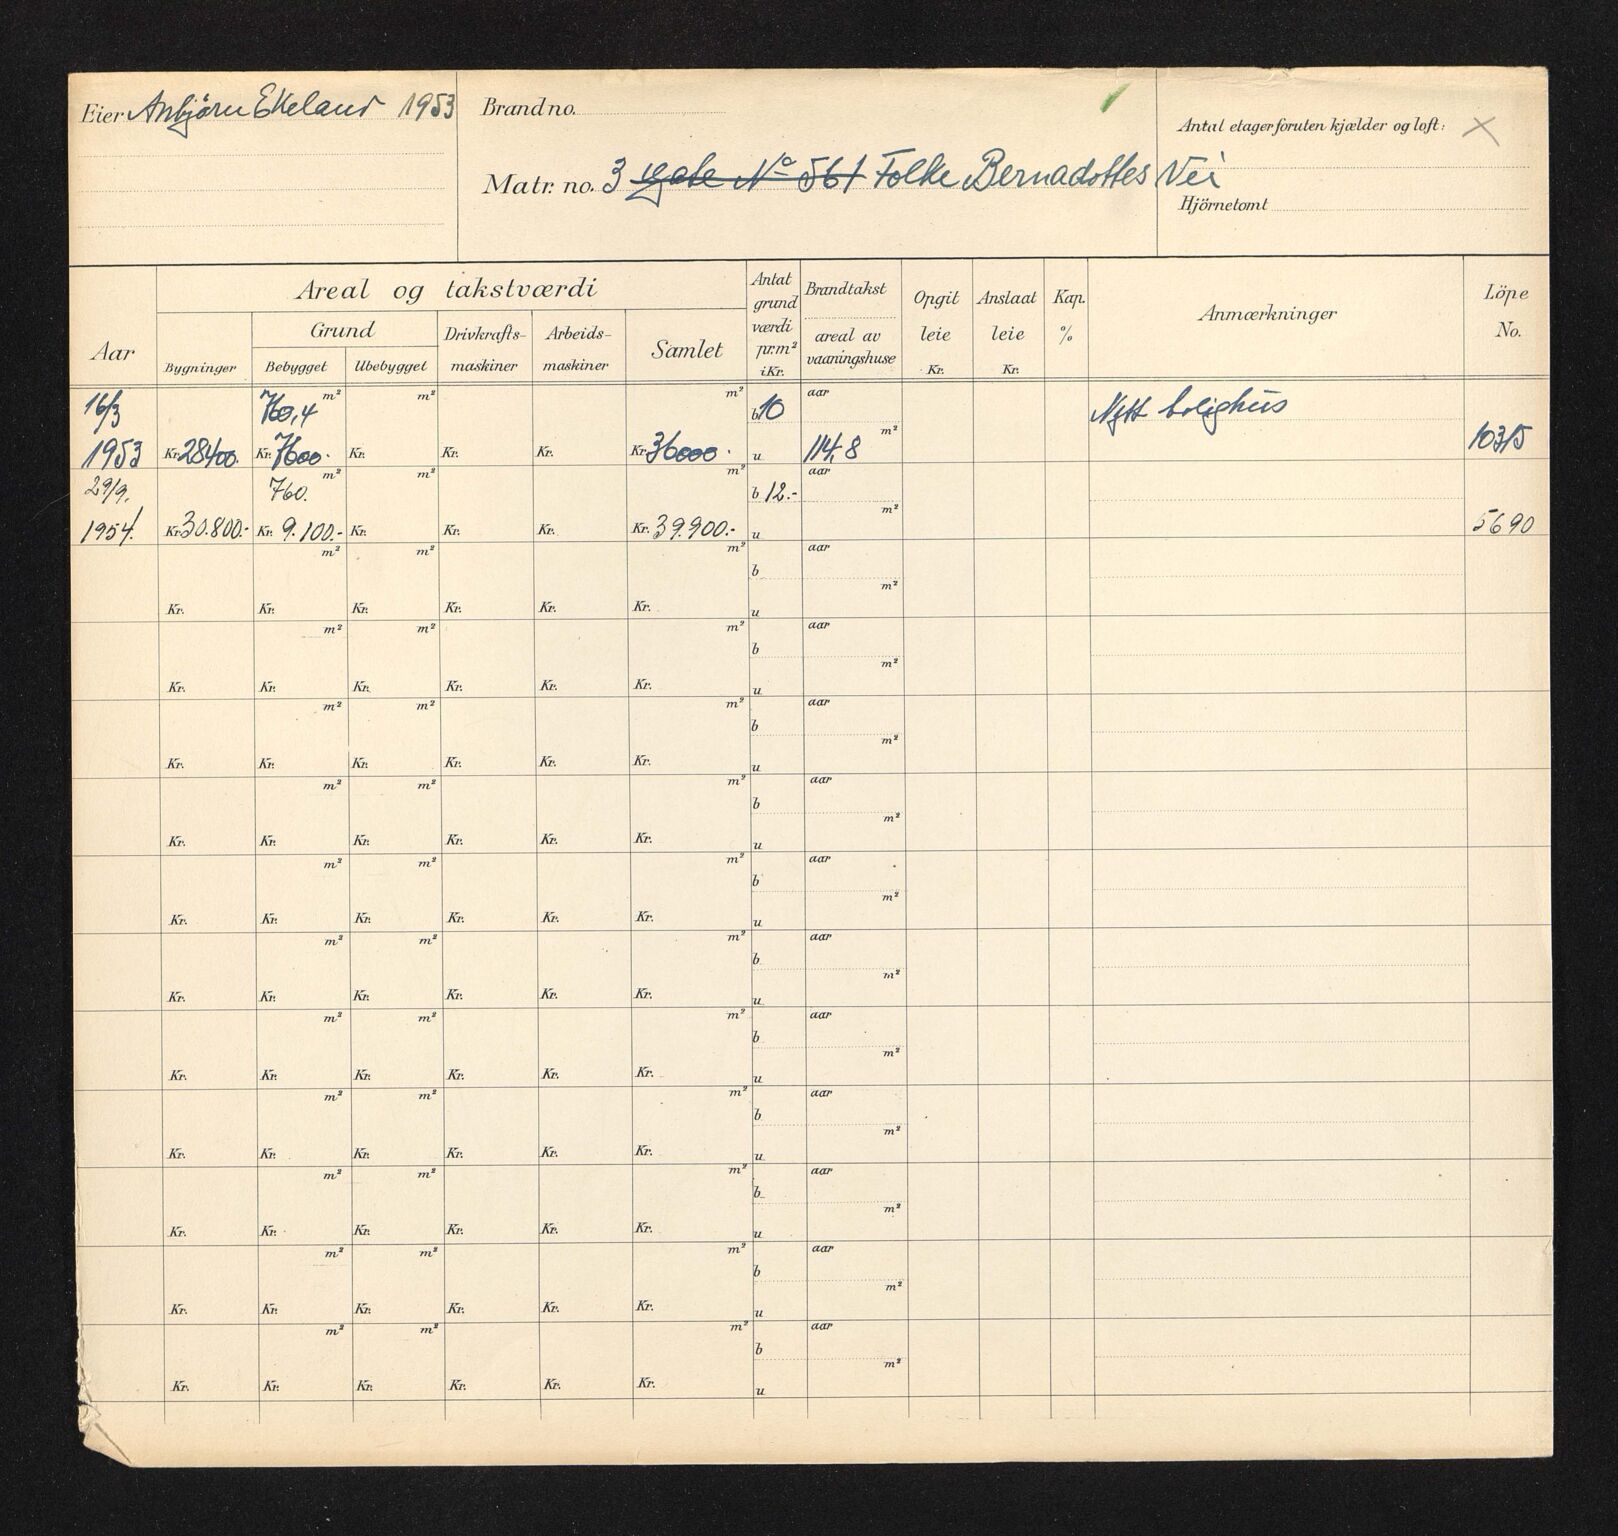 Eier Asbjørn Ekeland 1953
Brandno.
Matr. no. 3 gate No 561 Folke Bernadottes Vei
Antal etager foruten kjælder og loft: X
Hjörnetomt
Areal og takstværdi
Aar
Bygninger
Grund
Bebygget
Ubebygget
Drivkrafts-
maskiner
Arbeids-
maskiner
Samlet
Antat
grund
værdi
pr. m²
i Kr.
Brandtakst
areal av
vaaningshuse
Opgit
leie
Kr.
Anslaat
leie
Kr.
Kap.
%
Anmærkninger
Löpe
No.
16/3 760,4 m² m² m² b 10 aar Nytt bolighus
1953 Kr. 28400. Kr. 7600. Kr. Kr. Kr. Kr. 36000. u 114,8 m² 10315
29/9. 760. m² m² m² b 12.- aar
1954. Kr. 30.800.- Kr. 9.100.- Kr. Kr. Kr. Kr. 39.900.- u m² 5690
m² m² m² b aar
Kr. Kr. Kr. Kr. Kr. Kr. u m²
m² m² m² b aar
Kr. Kr. Kr. Kr. Kr. Kr. u m²
m² m² m² b aar
Kr. Kr. Kr. Kr. Kr. Kr. u m²
m² m² m² b aar
Kr. Kr. Kr. Kr. Kr. Kr. u m²
m² m² m² b aar
Kr. Kr. Kr. Kr. Kr. Kr. u m²
m² m² m² b aar
Kr. Kr. Kr. Kr. Kr. Kr. u m²
m² m² m² b aar
Kr. Kr. Kr. Kr. Kr. Kr. u m²
m² m² m² b aar
Kr. Kr. Kr. Kr. Kr. Kr. u m²
m² m² m² b aar
Kr. Kr. Kr. Kr. Kr. Kr. u m²
m² m² m² b aar
Kr. Kr. Kr. Kr. Kr. Kr. u m²
m² m² m² b aar
Kr. Kr. Kr. Kr. Kr. Kr. u m²